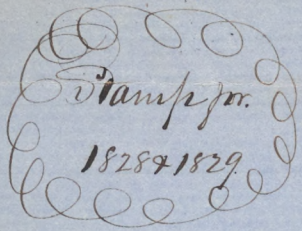 Stamps for.
1828 & 1829